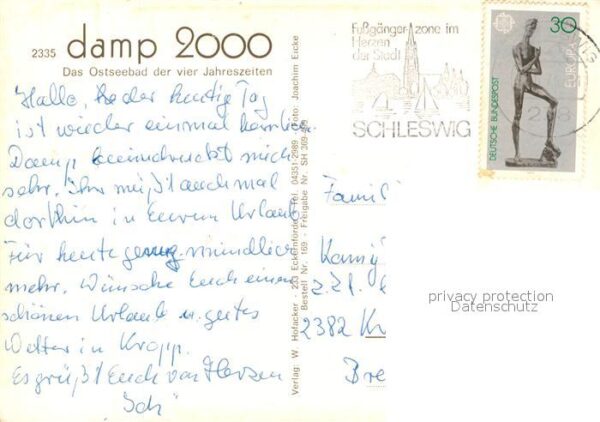 2335 damp 2000
Das Ostseebad der vier Jahreszeiten
Hallo, der heutige Tag
ist wieder einmal
Damp beeindruckt mich
sehr. Ihr müßt auch mal
dorthin in Eurem Urlaub
Für heute genug mündlich
mehr. Wünsche Euch einen
schönen Urlaub u. gutes
Wetter in Kropp.
Es grüßt Euch von Herzen
Ich
Verlag: W. Hofacker - 233 Eckernförde - Tel. 04351-2989 - Foto: Joachim Eicke
Bestell Nr. 169 - Freigabe Nr. SH 369
Fußgänger zone im
Herzen
der Stadt
SCHLESWIG
30
EUROPA
DEUTSCHE BUNDESPOST
Famil
z.Zt.
2382 Kr
Bre
privacy protection
Datenschutz